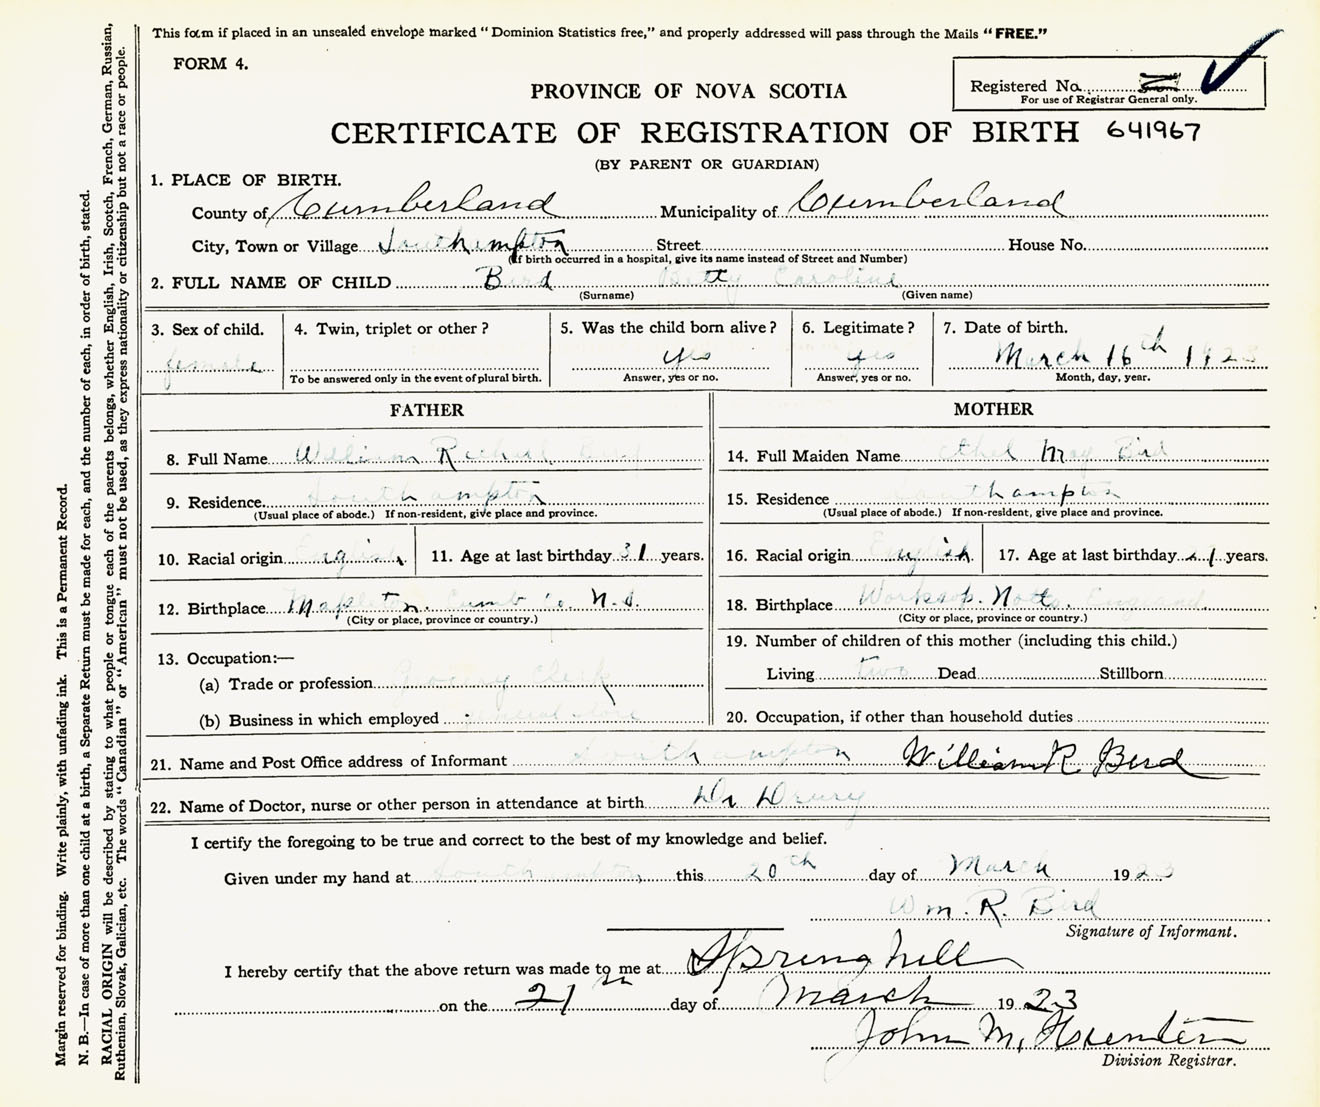 This form if placed in an unsealed envelope marked "Dominion Statistics free," and properly addressed will pass through the Mails "FREE."
FORM 4.
Registered No.
For use of Registrar General only.
PROVINCE OF NOVA SCOTIA
CERTIFICATE OF REGISTRATION OF BIRTH 641967
(BY PARENT OR GUARDIAN)
1. PLACE OF BIRTH.
County of Cumberland Municipality of Cumberland
City, Town or Village Southampton Street House No.
(If birth occurred in a hospital, give its name instead of Street and Number)
2. FULL NAME OF CHILD Bird Betty Caroline
(Surname) (Given name)
3. Sex of child. 4. Twin, triplet or other? 5. Was the child born alive? 6. Legitimate? 7. Date of birth.
female yes yes March 16th 1923
To be answered only in the event of plural birth. Answer, yes or no. Answer, yes or no. Month, day, year.
FATHER MOTHER
8. Full Name William Richard Bird 14. Full Maiden Name Ethel May Bird
9. Residence Southampton 15. Residence Southampton
(Usual place of abode.) If non-resident, give place and province. (Usual place of abode.) If non-resident, give place and province.
10. Racial origin English 11. Age at last birthday 31 years. 16. Racial origin English 17. Age at last birthday 21 years.
12. Birthplace Mapleton. Cumb Co. N.S. 18. Birthplace Worksop. Notts. England
(City or place, province or country.) (City or place, province or country.)
19. Number of children of this mother (including this child.)
13. Occupation:—
(a) Trade or profession Grocery Clerk Living two Dead Stillborn
(b) Business in which employed general store 20. Occupation, if other than household duties
21. Name and Post Office address of Informant Southampton William R Bird
22. Name of Doctor, nurse or other person in attendance at birth Dr Drury
I certify the foregoing to be true and correct to the best of my knowledge and belief.
Given under my hand at Southampton, this 20th day of March 1923
Wm. R. Bird
Signature of Informant.
I hereby certify that the above return was made to me at Springhill
on the 21st day of March 1923
John M. Hunter
Division Registrar.
Margin reserved for binding. Write plainly, with unfading ink. This is a Permanent Record.
N. B.—In case of more than one child at a birth, a Separate Return must be made for each, and the number of each, in order of birth, stated.
RACIAL ORIGIN will be described by stating to what people or tongue each of the parents belongs, whether English, Irish, Scotch, French, German, Russian,
Ruthenian, Slovak, Galician, etc. The words "Canadian" or "American" must not be used, as they express nationality or citizenship but not a race or people.